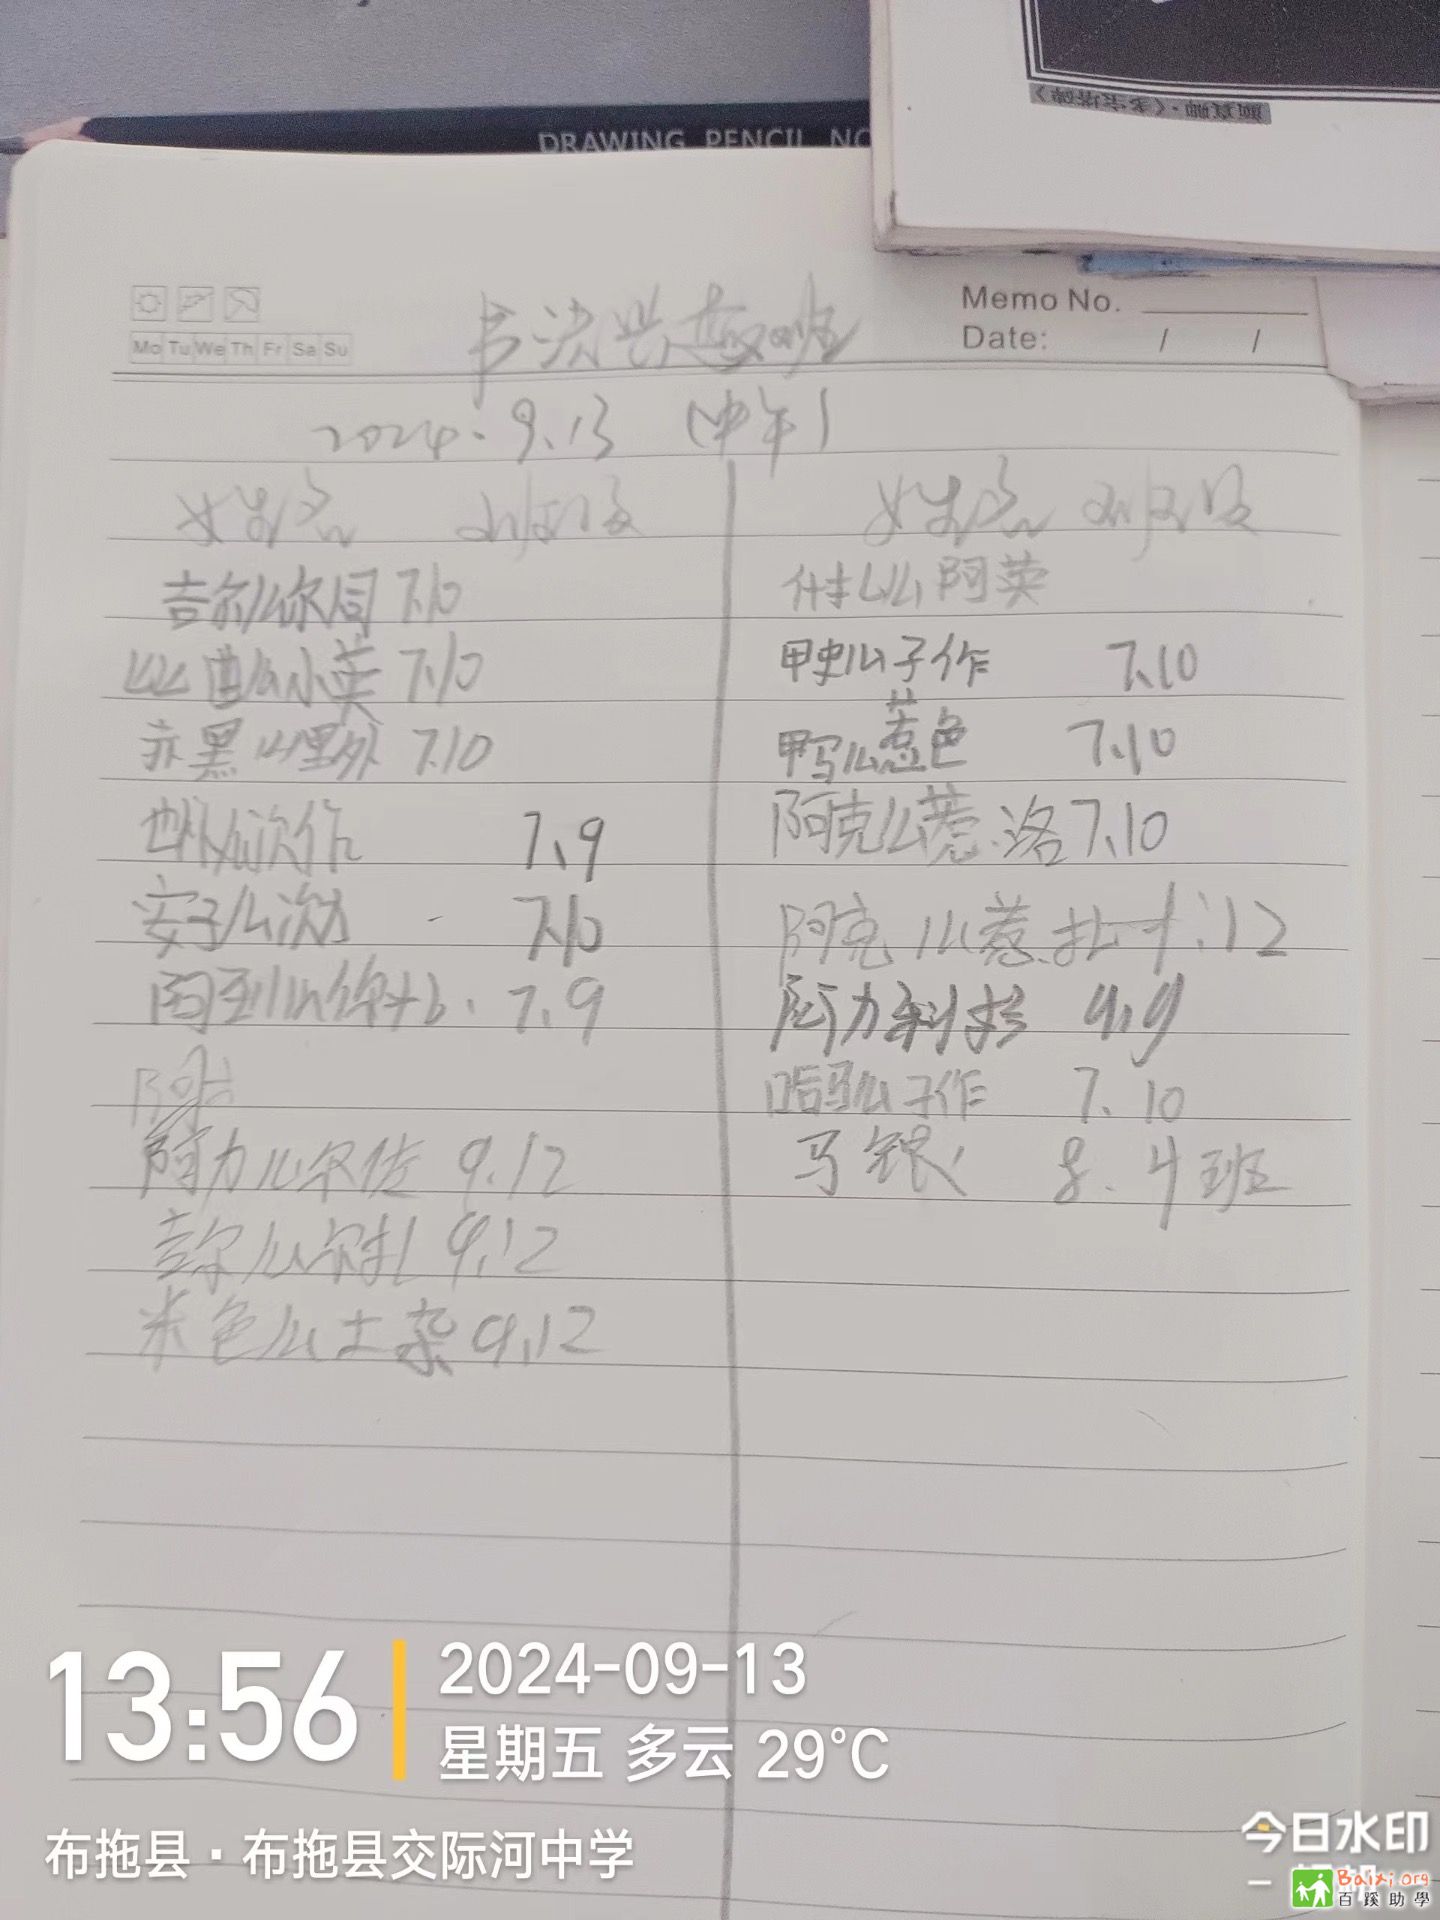 DRAWING PENCIL NO
Memo No.
Date: / /
Mo Tu We Th Fr Sa Su
书法兴趣班
2024.9.13 (中午)
姓名 班级
吉尔么尔同 7.10
么小英 7.10
赤黑么里外 7.10
次作 7.9
安子么次 7.10
阿 7.9
阿力么尔佐 9.12
吉尔么尔扎 9.12
米色么土杂 9.12
姓名 班级
什扎么阿英
甲史么子作 7.10
鸭么惹色 7.10
阿克么惹洛 7.10
阿克么惹扎 9.12
阿力利 9.9
哈马么子作 7.10
马银 8.4班
13:56
2024-09-13
星期五 多云 29°C
布拖县·布拖县交际河中学
今日水印
Baixi.org
百蹊助學